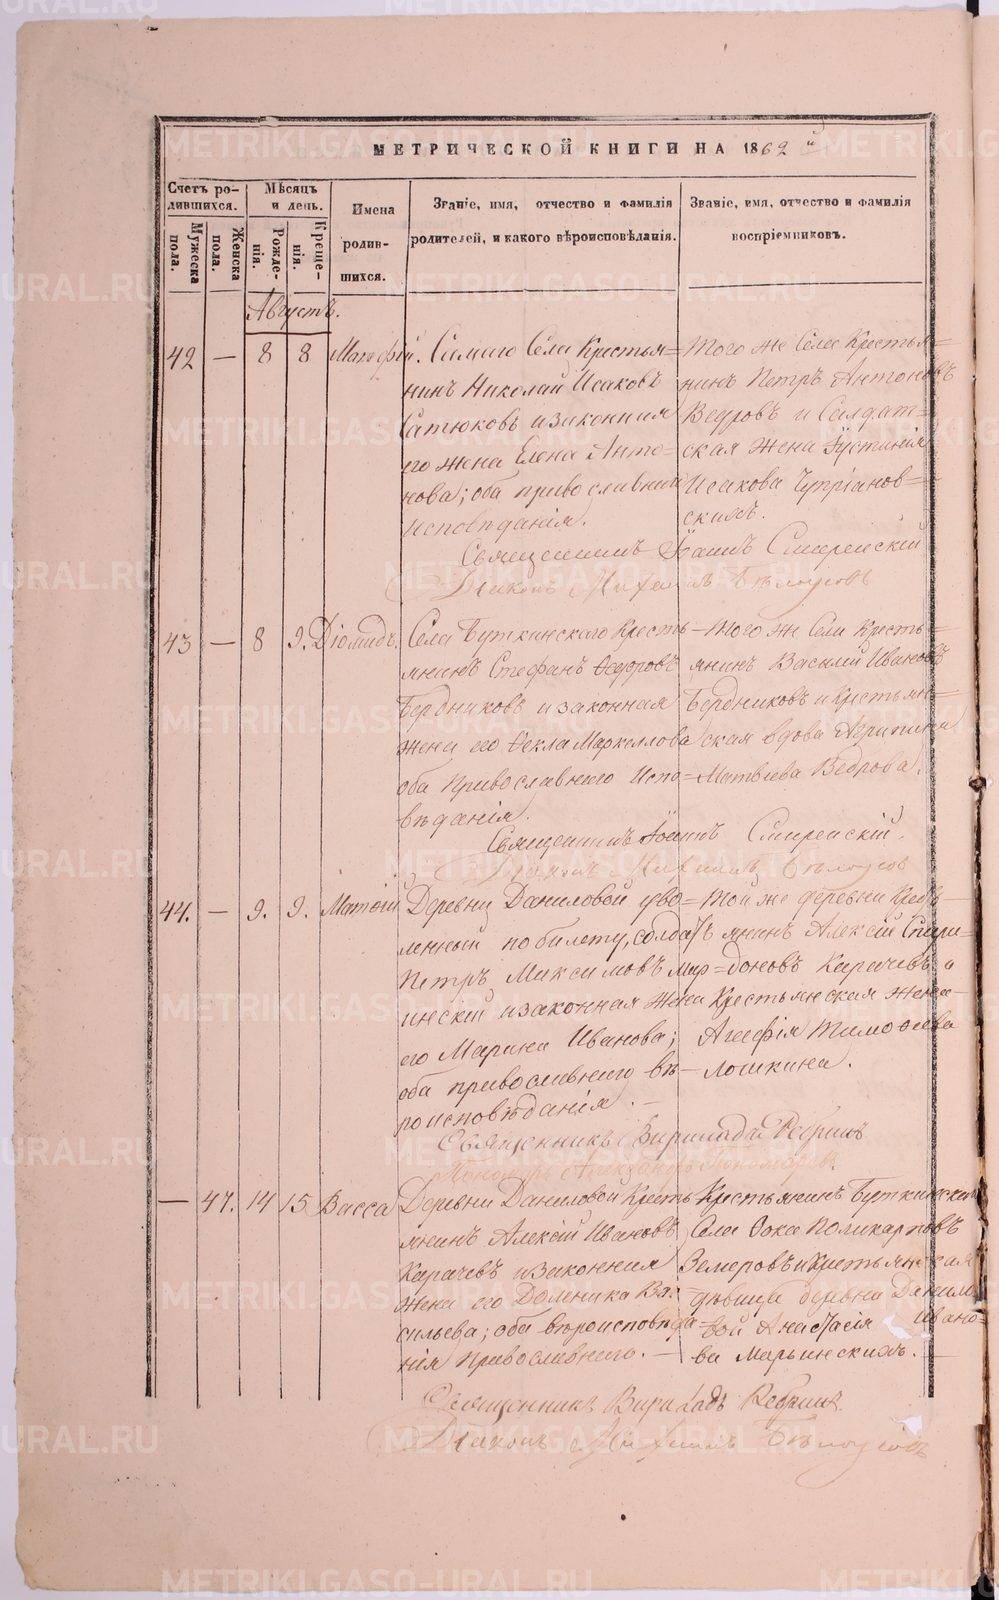 МЕТРИЧЕСКОЙ КНИГИ НА 1862 й
Счетъ ро-
дившихся.
Мужеска
пола.
Женска
пола.
Мѣсяцъ
и день.
Рожде-
нія.
Креще-
нія.
Имена
родив-
шихся.
Званіе, имя, отчество и фамилія
родителей, и какого вѣроисповѣданія.
Званіе, имя, отчество и фамилія
воспріемниковъ.
Августъ.
42 — 8 8
Самаго Села Крестья=
нинъ Николай Исаковъ
Сатюковъ и законная
его жена Елена Анто=
нова; оба православнаго
исповѣданія.
Того же Села Крестья=
нинъ Петръ Антоновъ
Ведровъ и Солдат=
ская жена Іустинія
Исакова Чупріанов=
скихъ.
Священникъ Іоаннъ Смиренскій
Діаконъ Михаилъ
43 — 8 9. Діомидъ.
Села Буткинскаго Кресть-
янинъ Стефанъ Ѳедоровъ
Бердниковъ и законная
жена его Ѳекла Маркеллова
оба Православнаго Испо=
вѣданія.
Того же Села Кресть=
янинъ Василій Ивановъ
Бердниковъ и крестьян=
ская вдова Агрипина
Матвіева Ведрова.
Священникъ Іоаннъ Смиренскій.
Діаконъ Михаилъ
44. — 9. 9. Матѳій
Деревни Даниловой уво=
ленный по билету, солдатъ
Петръ Максимовъ Мар=
инскій и законная жена
его Марина Иванова;
оба православнаго вѣ-
роисповѣданія. —
Той же деревни Крест-
янинъ Алексій Спири=
доновъ Карачевъ и
Крестьянская жена
Агафія Тимоѳеева
Лошкина.
Священникъ
Пономарь Александръ Пономаревъ
— 47. 14 15 Васса
Деревни Даниловой Кресть
янинъ Алексій Ивановъ
Карачевъ и законная
жена его Домника Ва=
сильева; оба вѣроисповѣда=
нія православнаго. —
Крестьянинъ Буткинскаго
Села Ѳока Поликарповъ
Земеровъ и крестьянская
дѣвица деревни Данило
вой Анастасія Ивано-
ва Марьинскихъ. —
Священникъ
Діаконъ Михаилъ
METRIKI.GASO-URAL.RU